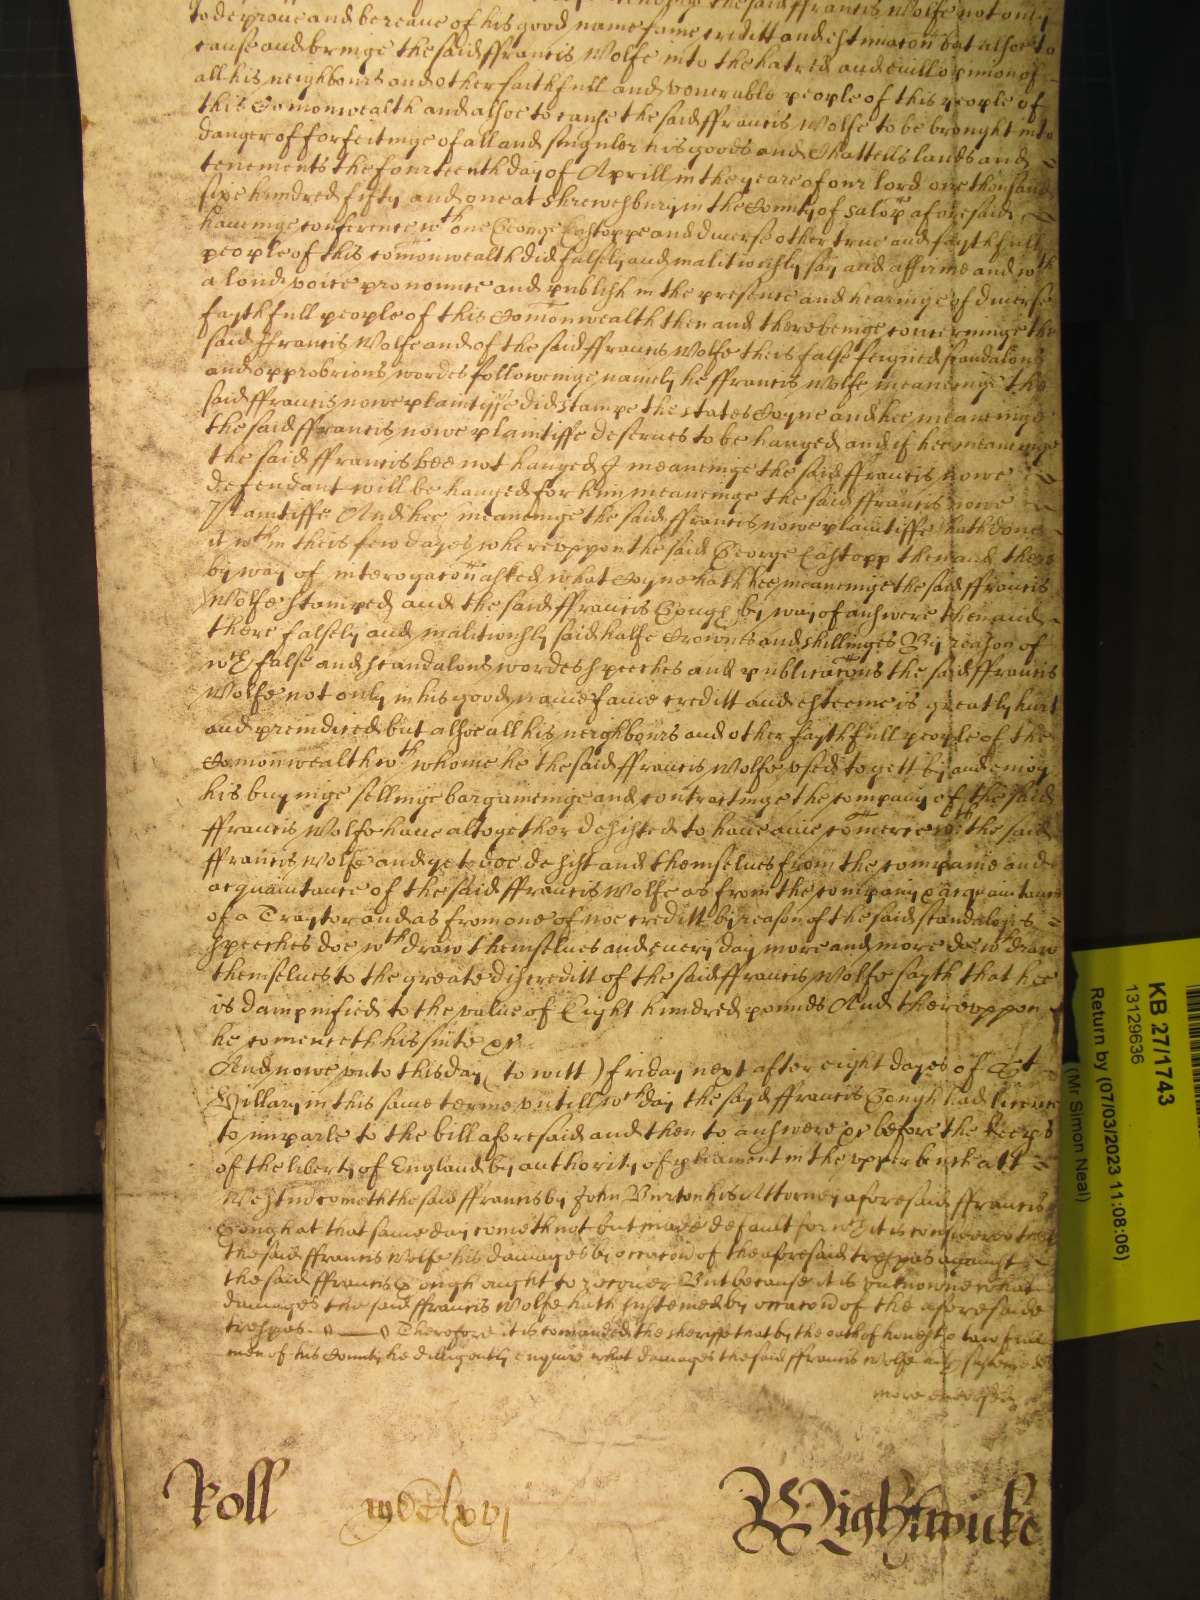 the said ffrancis Wolfe not only
to deprave and bereave of his good name fame creditt and estimacon but alsoe to
cause and bringe the said ffrancis Wolfe into the hatred and evill opinion of
all his neighbours and other faithfull and venerable people of this people of
this Comonwealth and alsoe to cause the said ffrancis Wolfe to be brought into
danger of forfeitinge of all and singuler his goods and Chattells lands and
tenements the fourteenth day of Aprill in the yeare of our lord one thousand
sixe hundred fifty and one at Shrewsbury in the County of Salop aforesaid
haveinge conference wth one George Eastoppe and diverse other true and faythfull
people of this comonwealth did falsely and malitiously say and affirme and wth
a loud voice pronounce and publish in the presence and hearinge of diverse
faythfull people of this Comonwealth then and there beinge concerninge the
said ffrancis Wolfe and of the said ffrancis Wolfe theis false feigned scandalous
and opprobrious wordes followeinge namely he ffrancis Wolfe meaneinge the
said ffrancis nowe plaintiffe did stampe the states Coyne and hee meaneinge
the said ffrancis nowe plaintiffe deserves to be hanged and if hee meaneinge
the said ffrancis bee not hanged I meaneinge the said ffrancis nowe
defendant will be hanged for him meaneinge the said ffrancis nowe
Plaintiffe And hee meaneinge the said ffrancis nowe plaintiffe hath done
it wth in theis few dayes whereuppon the said George Eastopp then and there
by way of interogacon asked what Coyne hath hee meaneinge the said ffrancis
Wolfe stamped and the said ffrancis Gough by way of answere then and
there falsely and malitiously said halfe Crownes and shillinges By reason of
wch false and scandalous wordes speeches and publicacons the said ffrancis
Wolfe not only in his good name fame creditt and esteeme is greatly hurt
and preiudiced but alsoe all his neighbours and other faythfull people of the
Comonwealth wth whome he the said ffrancis Wolfe used to gett by and enioy
his buyinge sellinge bargaineinge and contractinge the company of the said
ffrancis Wolfe have altogether desisted to have anie comerce wth the said
ffrancis Wolfe and yet doe desist and themselves from the companie and
acquaintance of the said ffrancis Wolfe as from the company & acquaintance
of a Traytor and as from one of noe creditt by reason of the said scandalous
speeches doe wth draw themselves and every day more and more doe wth draw
themselves to the greate discreditt of the said ffrancis Wolfe sayth that hee
is dampnified to the value of Eight hundred pounds And thereuppon
he comenceth his suite &c
And nowe unto this day (to witt) friday next after eight dayes of St
Hillary in this same terme untill wch day the sayd ffrancis Gough had licence
to imparle to the bill aforesaid and then to answere &c before the keepers
of the liberty of England by authority of parliament in the upper bench att
Westmr cometh the said ffrancis by John Burton his Attorney aforesaid ffrancis
Gough at that same day cometh not but made default for wch it is considered that
the said ffrancis Wolfe his damages by occacon of the aforesaid trespas against
the said ffrancis Gough ought to recover But because it is unknowne what
damages the said ffrancis Wolfe hath susteined by occacon of the aforesaide
trespas Therefore it is comanded the sheriffe that by the oath of honest & lawfull
men of his County he dilligently enquire what damages the said ffrancis Wolfe susteined
more
Roll
Wightwicke
KB 27/1743
13129636
Return by (07/03/2023 11:08:06)
(Mr Simon Neal)